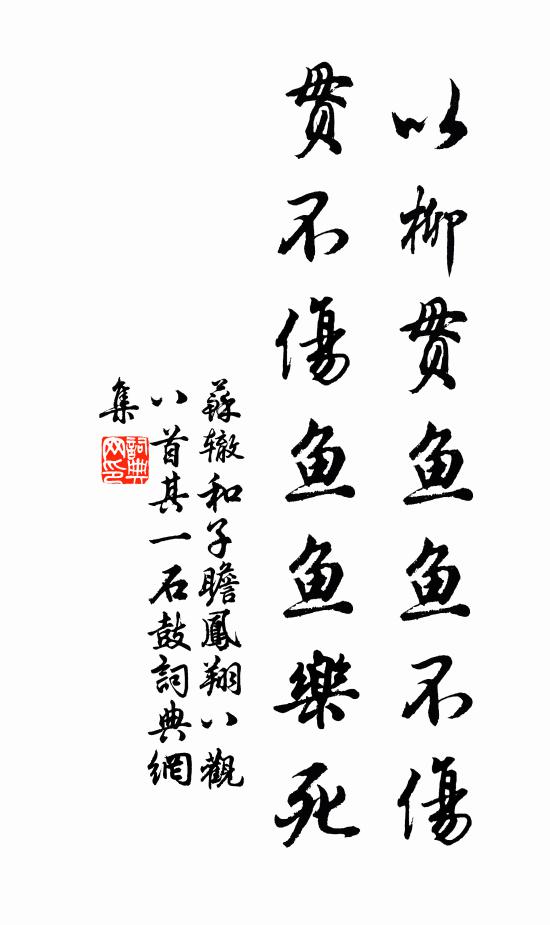 以柳贯鱼鱼不傷
贯不傷鱼鱼樂死
蘇辙和子瞻鳳翔八觀
八首其一石鼓詞典網
集
詞典
网印